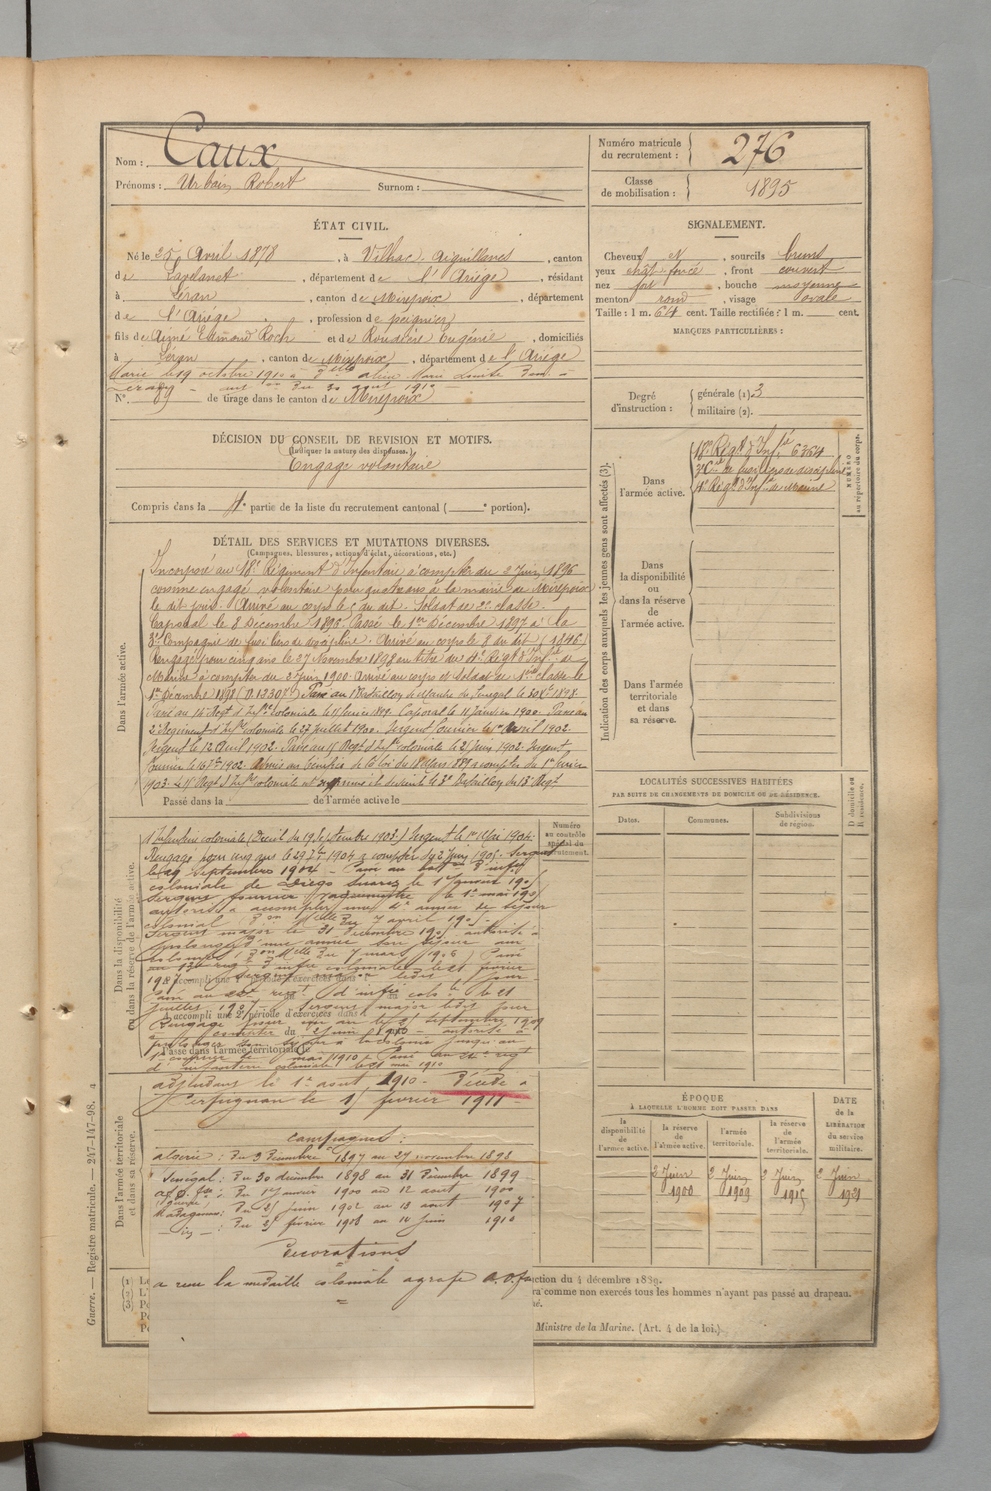 Nom : Caux
Prénoms : Urbain Robert Surnom :
Numéro matricule du recrutement : 276
Classe de mobilisation : 1895
ÉTAT CIVIL.
Né le 25 Avril 1878, à Vilhac Aiguillanes, canton
de Lavelanet, département de l'Ariège, résidant
à Léran, canton de Mirepoix, département
de l'Ariège, profession de peignier
fils de Aimé Edmond Roch et de Roudière Eugénie, domiciliés
à Léran, canton de Mirepoix, département de l'Ariège
Marié le 19 octobre 1910 à
du 30 août 1910
N°. 89 de tirage dans le canton de Mirepoix
SIGNALEMENT.
Cheveux et, sourcils bruns
yeux chât. foncé, front couvert
nez fort, bouche moyenne
menton rond, visage ovale
Taille : 1 m. 64 cent. Taille rectifiée : 1 m. cent.
MARQUES PARTICULIÈRES :
Degré d'instruction : générale (1) 3
militaire (2).
DÉCISION DU CONSEIL DE REVISION ET MOTIFS.
(Indiquer la nature des dispenses.)
Engagé volontaire
Compris dans la 4e partie de la liste du recrutement cantonal ( e portion).
Indication des corps auxquels les jeunes gens sont affectés (3).
NUMÉRO au répertoire du corps.
Dans l'armée active.
18e Régt d'Infie 6364
3e Cie de fusiliers de discipline
4e Régt d'Infie de Marine
Dans la disponibilité ou dans la réserve de l'armée active.
Dans l'armée territoriale et dans sa réserve.
DÉTAIL DES SERVICES ET MUTATIONS DIVERSES.
(Campagnes, blessures, actions d'éclat, décorations, etc.)
Dans l'armée active.
Incorporé au 18e Régiment d'Infanterie à compter du 2 Juin 1896
comme engagé volontaire pour quatre ans à la mairie de Mirepoix
le dit jour. Arrivé au corps le 5 du dit. Soldat de 2e classe.
Caporal le 8 Décembre 1896. Passé le 1er Décembre 1897 à la
3e Compagnie de fusiliers de discipline. Arrivé au corps le 8 du dit (1846)
Rengagé pour cinq ans le 27 Novembre 1898 au titre du 4e Régt d'Infie de
Marine à compter du 2 Juin 1900. Arrivé au corps et Soldat de classe le
1er Décembre 1898 (N. 13307). Passé au Bataillon de Marche du Sénégal le 30 Xbre 1898.
Caporal le 11 Janvier 1900. Passé au
2e Régiment d'Infie coloniale le 27 juillet 1900. Sergent fourrier le 1er Avril 1902.
Sergent le 12 Avril 1902. Passé au 15 Régt d'Infie coloniale le 25 Juin 1902. Sergent
fourrier le 16 1902. Admis au bénéfice de la loi du 18 Mars 1889 à compter du 1er
1903. Le 15 Régt d'Infie coloniale est et devient le 3e Bataillon du 13e Régt
Passé dans la de l'armée active le
Dans la disponibilité ou dans la réserve de l'armée active.
Numéro au contrôle spécial du recrutement.
d'Infanterie coloniale (Décret du 19 Septembre 1903) Sergent le 1er Mai 1904.
Rengagé pour cinq ans le 29 1904 à compter du 2 Juin 1905. Sergent
le 29 Septembre 1904 - Passé au baton d'infie
coloniale de Diego Suarez le 1er
sergent fourrier le 1er mai
autorisé à accomplir une 4e année de séjour
colonial du 7 avril
Sergent major le 31 décembre autorisé à
prolonger d'une année son séjour aux
colonies du 7 mars 1906 Passé
au 13e regt d'infie coloniale le 21 février
1907
Passé au regt d'infie colo le 21
juillet 1907 - sergent major ledit jour
Rengagé pour un an le 21 septembre 1909
à compter du 2 juin 1910 - autorisé à
prolonger son séjour à la colonie jusqu'au
1er mai 1910. Passé au 24e regt
d'infanterie coloniale le 21 mai 1910
Passé dans l'armée territoriale le
Dans l'armée territoriale et dans sa réserve.
adjudant le 1er août 1910. Décédé à
Perpignan le 15 février 1911 -
Campagnes :
Algérie : Du 3 Décembre 1897 au 27 novembre 1898
Sénégal : Du 30 décembre 1898 au 31 Décembre 1899
Du 1er janvier 1900 au 12 août 1900
Madagascar : Du 25 juin 1902 au 13 août 1907
- id - : Du 25 février 1908 au 10 juin 1910
Décorations
a reçu la médaille coloniale agrafe A.O.fse
LOCALITÉS SUCCESSIVES HABITÉES
PAR SUITE DE CHANGEMENTS DE DOMICILE OU DE RÉSIDENCE.
Dates. Communes. Subdivisions de région. D domicile ou R résidence.
ÉPOQUE
À LAQUELLE L'HOMME DOIT PASSER DANS
la disponibilité de l'armée active. la réserve de l'armée active. l'armée territoriale. la réserve de l'armée territoriale.
DATE de la LIBÉRATION du service militaire.
2 Juin 1900 2 Juin 1909 2 Juin 1915 2 Juin 1921
ction du 4 décembre 1889.
ra comme non exercés tous les hommes n'ayant pas passé au drapeau.
Ministre de la Marine. (Art. 4 de la loi.)
Guerre. — Registre matricule. — 247-147-98. 4